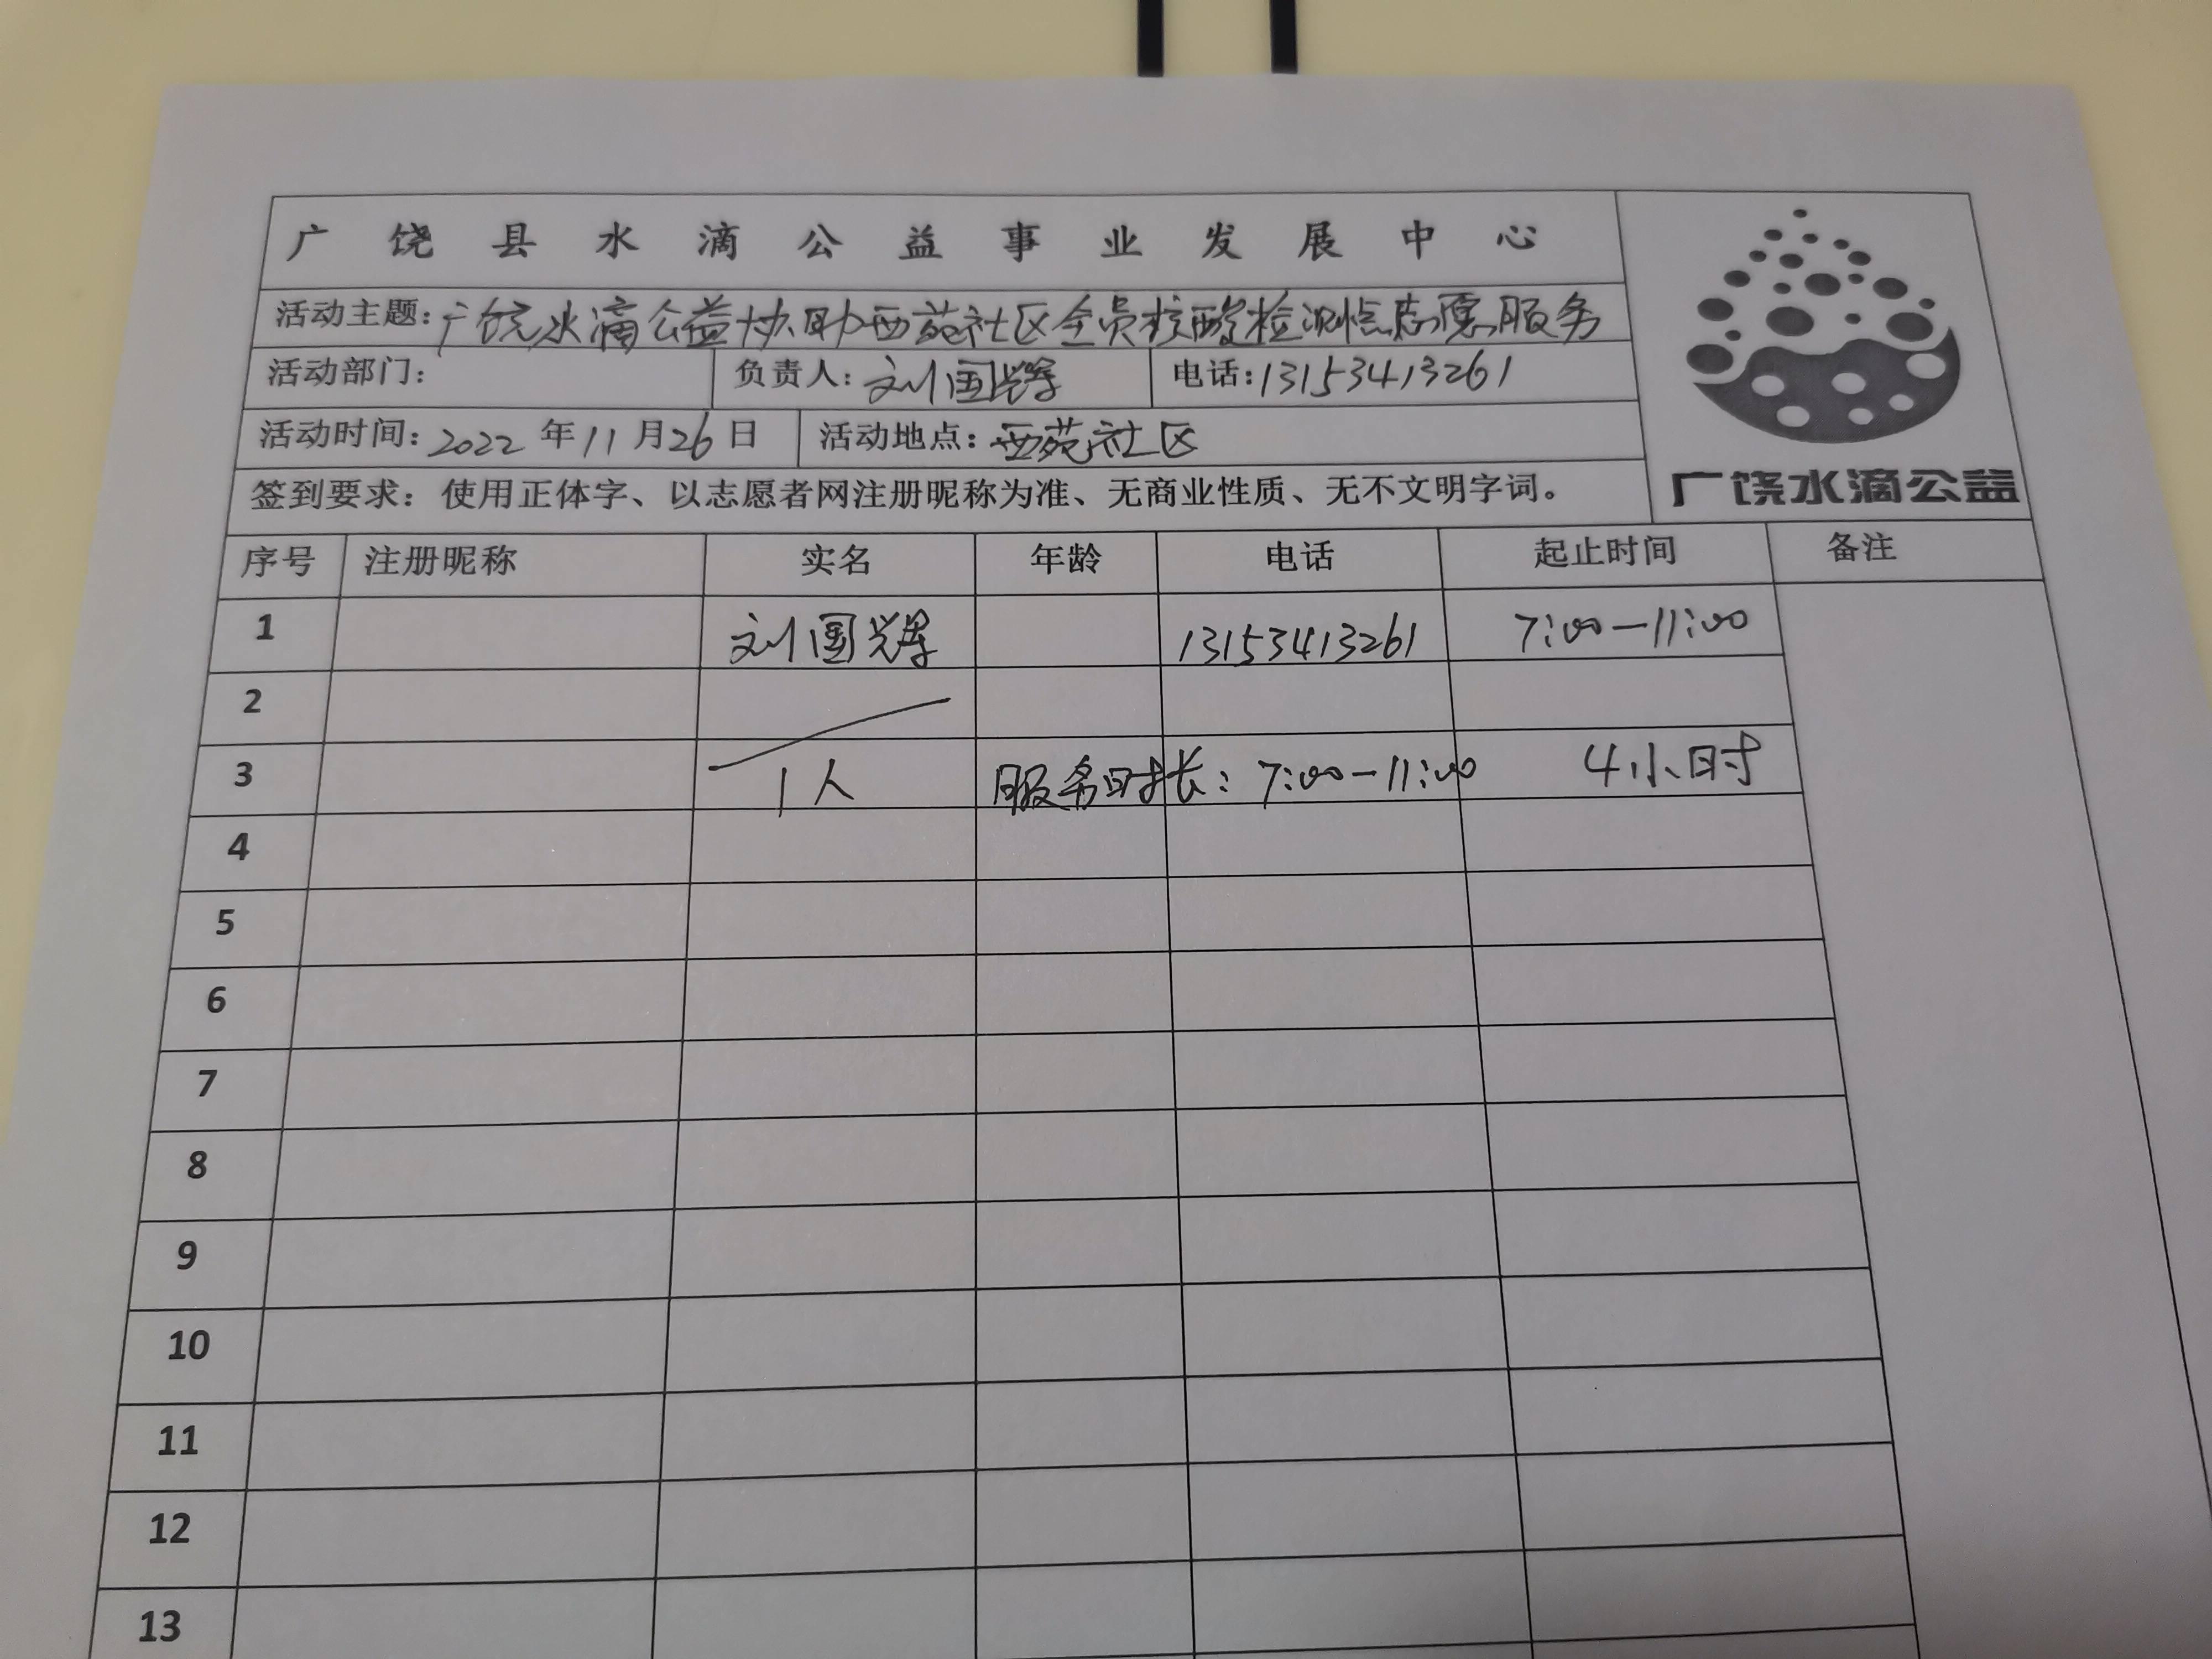 广饶县水滴公益事业发展中心
活动主题:广饶水滴公益协助西苑社区全员核酸检测点志愿服务
活动部门: 负责人:刘国辉 电话:13153413261
活动时间:2022年11月26日 活动地点:西苑社区
签到要求:使用正体字、以志愿者网注册昵称为准、无商业性质、无不文明字词。
广饶水滴公益
序号 注册昵称 实名 年龄 电话 起止时间 备注
1 刘国辉 13153413261 7:00-11:00
2
3 1人 服务时长:7:00-11:00 4小时
4
5
6
7
8
9
10
11
12
13